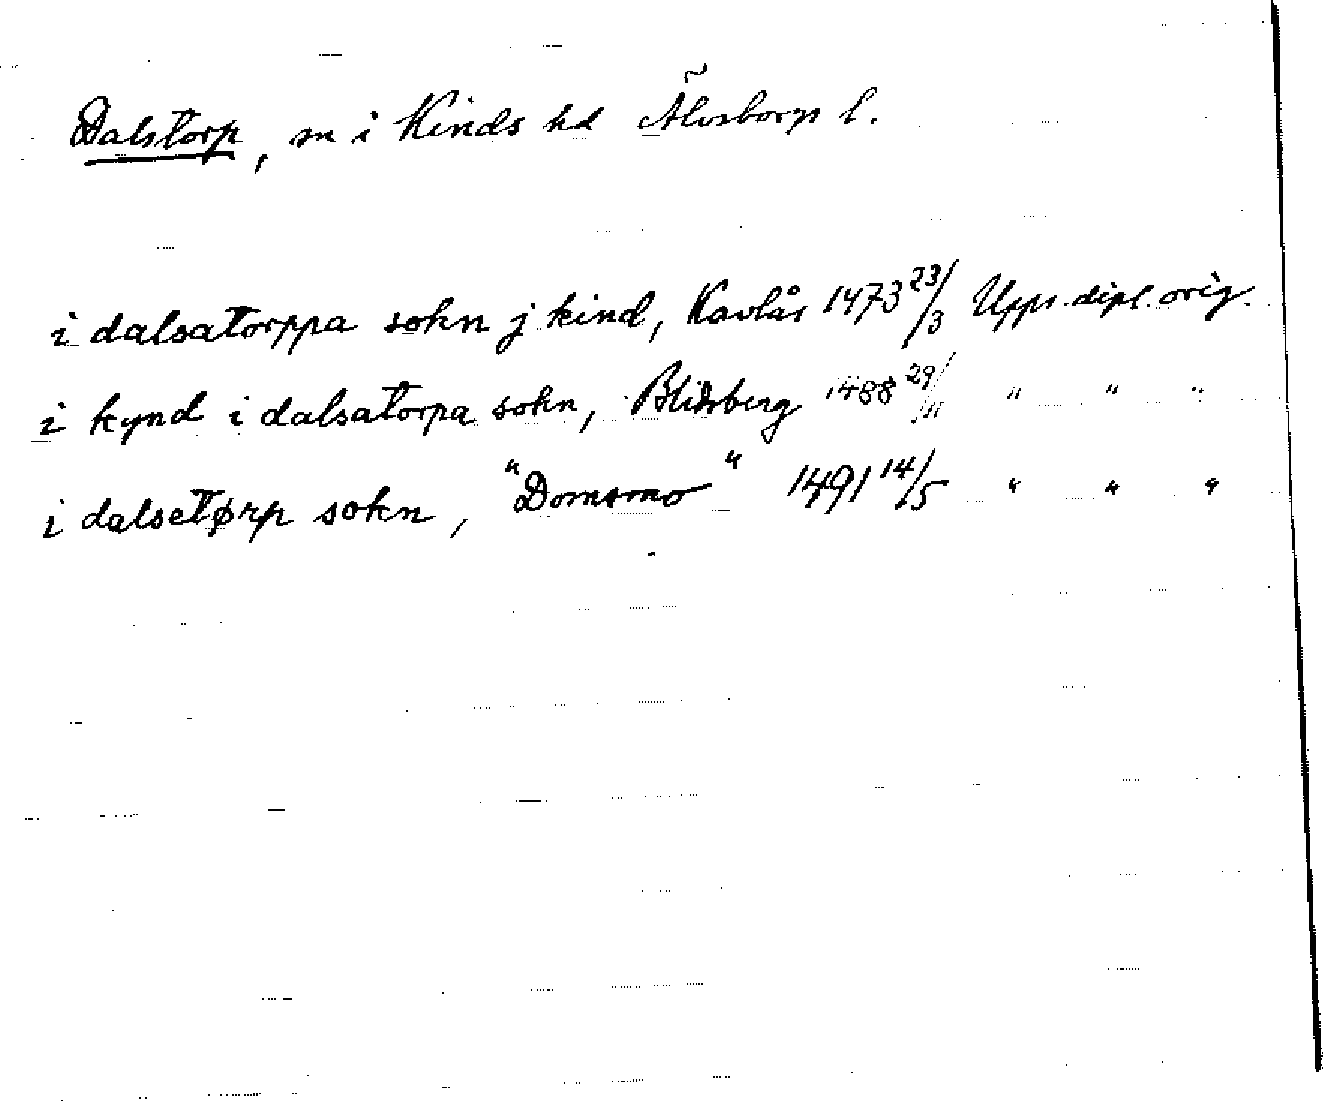 Dalstorp, sn i Kinds hd Älvsborgs l.
i dalsatorppa sokn j kind, Kavlås 1473 23/3 Upps. dipl. orig.
i kynd i dalsatorpa sokn, Blidsberg 1488 29/11 " " "
i dalsetørp sokn, "Domomo" 1491 14/5 " " "